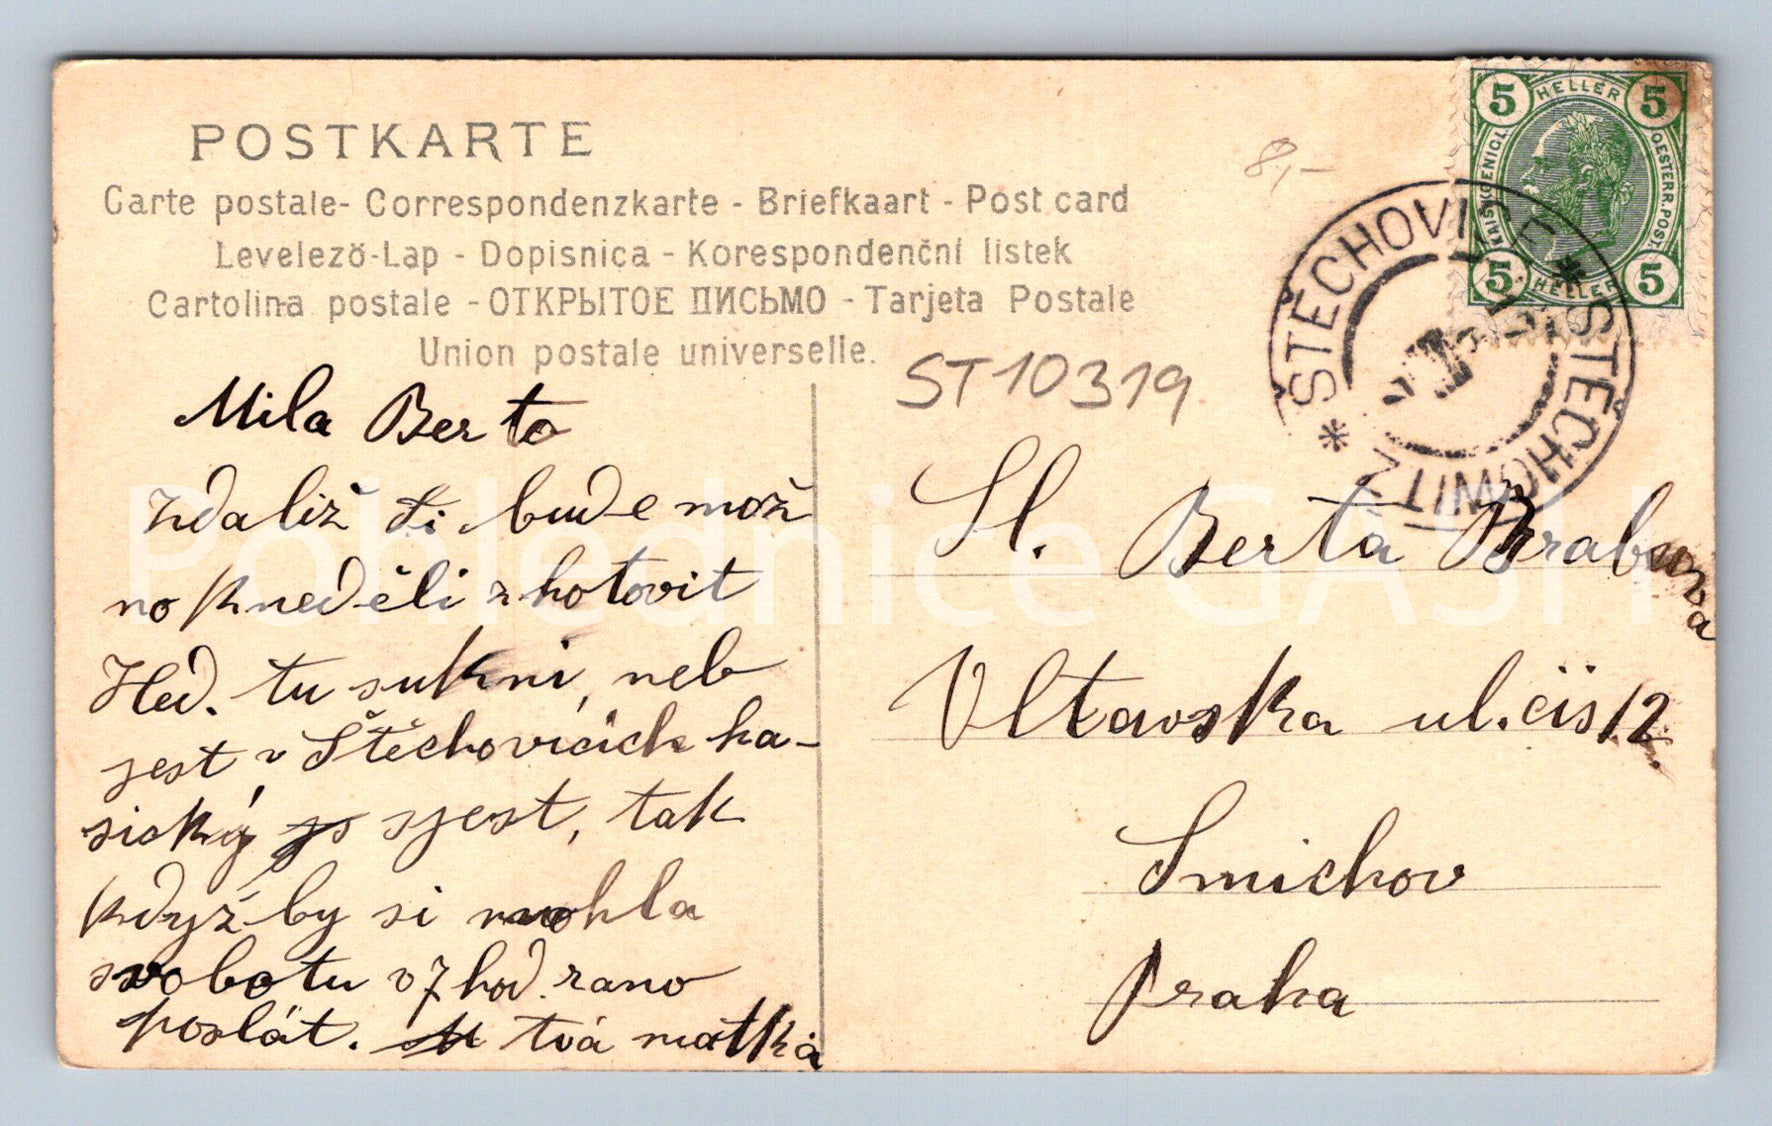 POSTKARTE
Carte postale- Correspondenzkarte - Briefkaart - Post card
Levelező-Lap - Dopisnica - Korespondenční listek
Cartolina postale - ОТКРЫТОЕ ПИСЬМО - Tarjeta Postale
Union postale universelle.
8,-
5 HELLER 5
KAIS. KOENIGL. OESTERR. POST.
5 HELLER 5
* ŠTĚCHOVICE * ŠTĚCHOWITZ
ST10319
Mila Berto
Zdaliž ti bude mož
no k neděli zhotovit
Hed. tu sukni, neb
jest v Štěchovicich ha-
sický sjest, tak
když by si mohla
sobotu v 7 hod. rano
poslát. tvá matka
Sl. Berta
Vltavska ul. čis 12.
Smichov
Praha
Pohlednice CASH